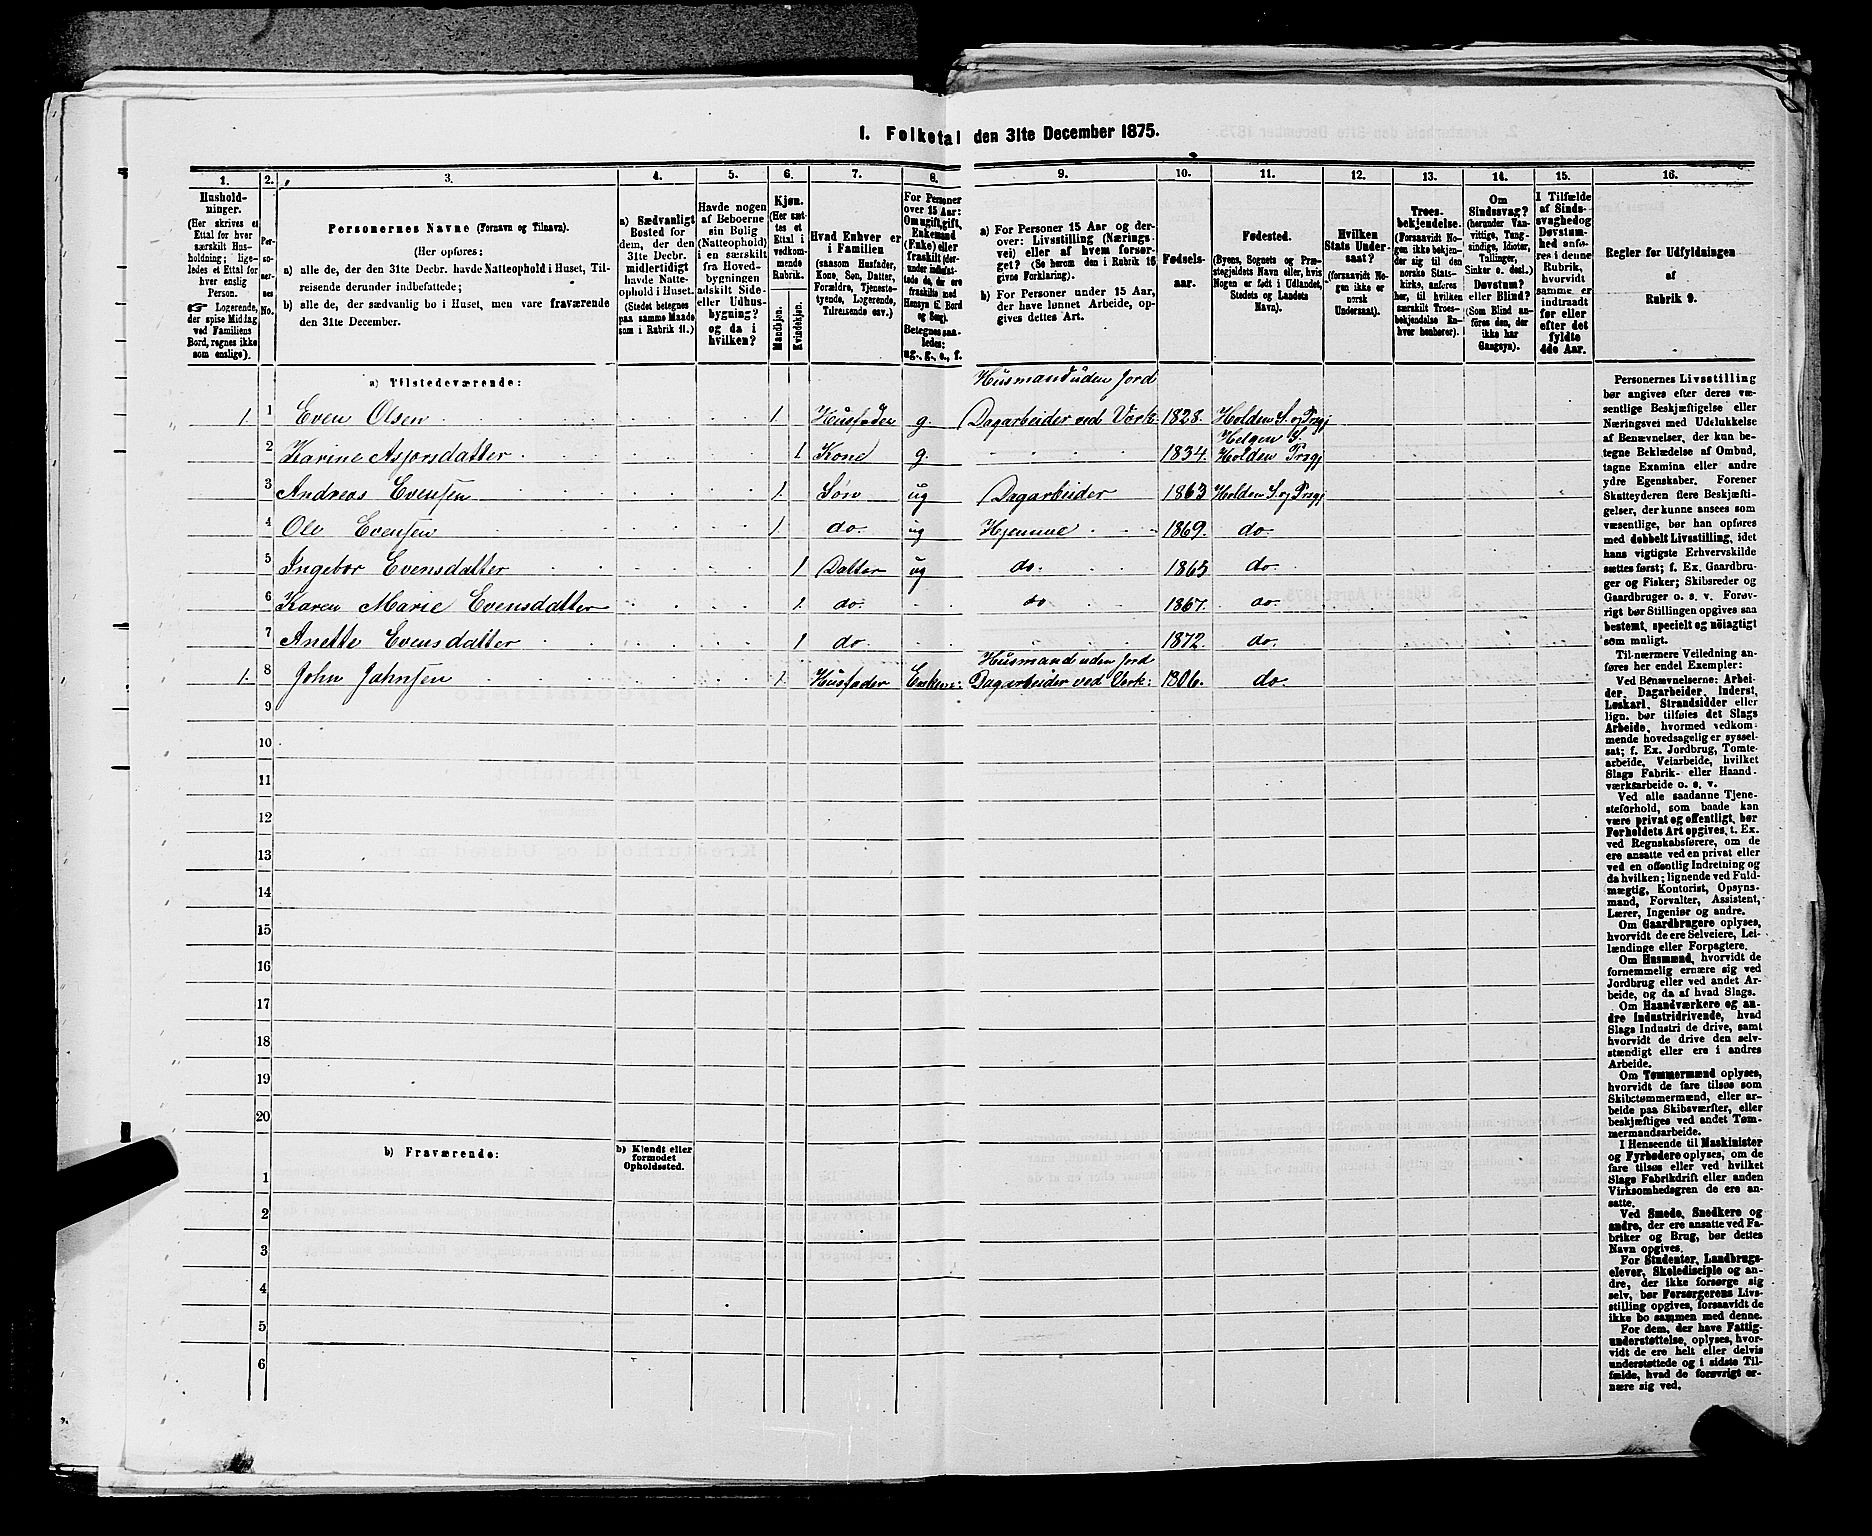 1. Folketal den 31te December 1875.
1. 2. 3. 4. 5. 6. 7. 8. 9. 10. 11. 12. 13. 14. 15. 16.
Husholdninger.
(Her skrives et
Ettal for hver
særskilt Husholdning;
ligeledes et Ettal for
hver enslig
Person.
Logerende,
der spise Middag
ved Familiens
Bord, regnes ikke
som enslige).
Personernes No.
Personernes Navne (Fornavn og Tilnavn).
(Her opføres:
a) alle de, der den 31te Decbr. havde Natteophold i Huset, Tilreisende
derunder indbefattede;
b) alle de, der sædvanlig bo i Huset, men vare fraværende
den 31te December.
a) Sædvanligt
Bosted for
dem, der den
31te Decbr.
midlertidigt
havde Natteophold
i Huset.
(Stedet betegnes
paa samme Maade
som i Rubrik 11.)
Havde nogen
af Beboerne
sin Bolig
(Natteophold)
i en særskilt
fra Hovedbygningen
adskilt Side-
eller Udhusbygning?
og da i
hvilken?
Kjøn.
(Her sættes
et
Ettal i
vedkommende
Rubrik.
Mandkjøn.
Kvindekjøn.
Hvad Enhver er
i Familien
(saasom Husfader,
Kone, Søn, Datter,
Forældre, Tjenestetyende,
Logerende,
Tilreisende osv.)
For Personer
over 15 Aar:
Om ugift, gift,
Enkemand
(Enke) eller
fraskilt (derunder
indbefattede,
de, der ere
fraskilte med
Hensyn til Bord
og Seng).
Betegnes saaledes:
ug., g., e., f.
a) For Personer 15 Aar og derover:
Livsstilling (Næringsvei)
eller af hvem forsørget?
(Se herom den i Rubrik 16
givne Forklaring).
b) For Personer under 15 Aar,
der have lønnet Arbeide, opgives
dettes Art.
Fødselsaar.
Fødested.
(Byens, Sognets og Præstegjeldets
Navn eller, hvis
Nogen er født i Udlandet,
Stedets og Landets
Navn).
Hvilken
Stats Undersaat?
(forsaavidt Nogen
ikke er
norsk
Undersaat).
Troesbekjendelse.
(Forsaavidt Nogen
ikke bekjender
sig til den
norske Statskirke,
anføres
her, til hvilken
særskilt Troesbekjendelse
Enhver
henhører).
Om
Sindssvag?
(herunder Vanvittige,
Tungsindige,
Idioter,
Tallinger,
Sinker o. desl.).
Døvstum?
eller Blind?
(Som Blind anføres
den, der
ikke har
Gangsyn).
I Tilfælde
af Sindssvaghed
og
Døvstumhed
anføres
i denne
Rubrik,
hvorvidt
samme er
indtraadt
før eller
efter det
fyldte
4de Aar.
Regler for Udfyldningen
af
Rubrik 9.
a) Tilstedeværende:
Husmand uden Jord
1. 1 Even Olsen 1. Husfader g. Dagarbeider ved Værk 1828. Holden S. og Prgj
Helgen S.
2 Karine Asjorsdatter 1 Kone g. 1834. Holden Prgj
3 Andreas Evensen 1. Søn ug Dagarbeider 1863 Holden S. og Prgj
4 Ole Evensen 1. do. ug Hjemme 1869. do.
5 Ingebor Evensdatter 1 Datter ug do. 1865 do.
6 Karen Marie Evensdatter 1. do. do 1867. do.
7 Anette Evensdatter 1 do. 1872. do.
Husmand uden Jord
1. 8 John Johnsen 1. Husfader Enkem: Dagarbeider ved Værk: 1806. do.
9
10
11
12
13
14
15
16
17
18
19
20
b) Fraværende:
b) Kjendt eller
formodet
Opholdssted.
1
2
3
4
5
6
Personernes Livsstilling
bør angives efter deres væsentlige
Beskjæftigelse eller
Næringsvei med Udelukkelse
af Benævnelser, der kun betegne
Beklædelse af Ombud,
tagne Examina eller andre
ydre Egenskaber. Forener
Skatteyderen flere Beskjæftigelser,
der kunne ansees som
væsentlige, bør han opføres
med dobbelt Livsstilling, idet
hans vigtigste Erhvervskilde
sættes først; f. Ex. Gaardbruger
og Fisker; Skibsreder og
Gaardbruger o. s. v. Forøvrigt
bør Stillingen opgives saa
bestemt, specielt og nøiagtigt
som muligt.
Til nærmere Veiledning anføres
her endel Exempler:
Ved Benævnelserne: Arbeider,
Dagarbeider, Inderst,
Løskarl, Strandsidder eller
lign. bør tilføies det Slags
Arbeide, hvormed vedkommende
hovedsagelig er sysselsat;
f. Ex. Jordbrug, Tomtearbeide,
Veiarbeide, hvilket
Slags Fabrik- eller Haandværksarbeide
o. s. v.
Ved alle saadanne Tjenesteforhold,
som baade kan
være privat og offentligt, bør
Forholdets Art opgives, t. Ex.
ved Regnskabsførere, om de
ere ansatte ved en privat eller
ved en offentlig Indretning og
da hvilken; lignende ved Fuldmægtig,
Kontorist, Opsynsmand,
Forvalter, Assistent,
Lærer, Ingeniør og andre.
Om Gaardbrugere oplyses,
hvorvidt de ere Selveiere, Leilændinge
eller Forpagtere.
Om Husmænd, hvorvidt de
fornemmelig ernære sig ved
Jordbrug eller ved andet Arbeide,
og da af hvad Slags.
Om Haandværkere og andre
Industridrivende, hvad
Slags Industri de drive, samt
hvorvidt de drive den selvstændigt
eller ere i andres
Arbeide.
Om Tømmermænd oplyses,
hvorvidt de fare tilsøs som
Skibstømmermænd, eller arbeide
paa Skibsværfter, eller
beskjæftiges ved andet Tømmermandsarbeide.
I Henseende til Maskinister
og Fyrbødere oplyses, om de
fare tilsøs eller ved hvilket
Slags Fabrikdrift eller anden
Virksomhedsgren de ere ansatte.
Ved Smede, Snedkere og
andre, der ere ansatte ved Fabriker
og Brug, bør dettes
Navn opgives.
For Studenter, Landbrugselever,
Skoledisciple og andre,
der ikke forsørge sig
selv, bør Forsørgerens Livsstilling
opgives, forsaavidt de
ikke bo sammen med denne.
For dem, der have Fattigunderstøttelse,
oplyses, hvorvidt
de ere helt eller delvis
understøttede og i sidste Tilfælde,
hvad de forøvrigt ernære
sig ved.